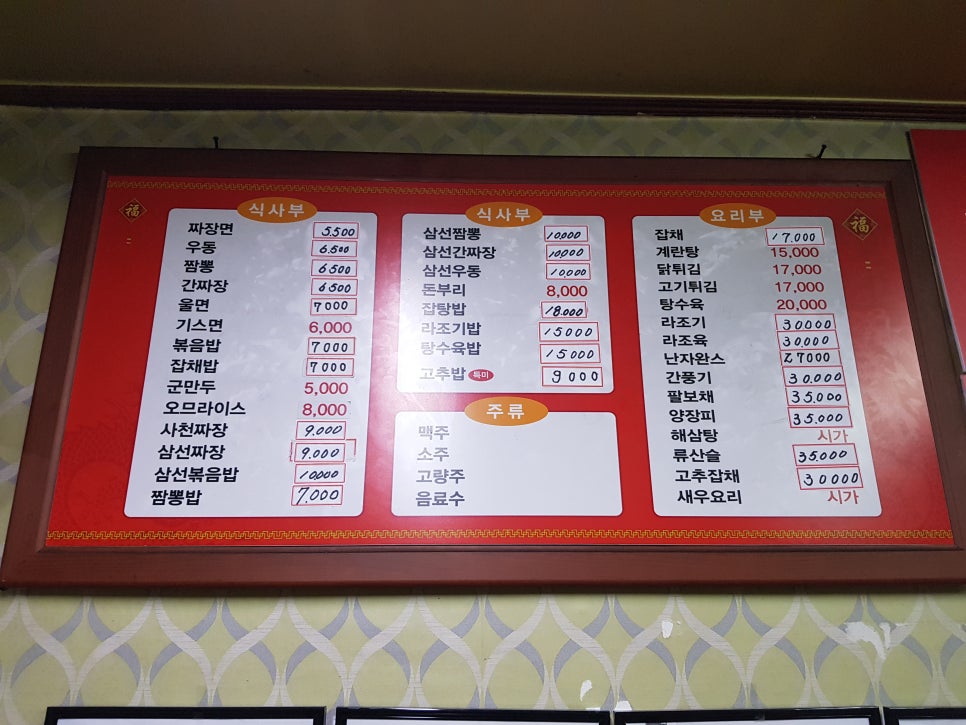 福
식사부
짜장면 5.500
우동 6.500
짬뽕 6500
간짜장 6500
울면 7000
기스면 6,000
볶음밥 7000
잡채밥 7000
군만두 5,000
오므라이스 8,000
사천짜장 9,000
삼선짜장 9.000
삼선볶음밥 10,000
짬뽕밥 7.000
식사부
삼선짬뽕 10,000
삼선간짜장 10,000
삼선우동 10,000
돈부리 8,000
잡탕밥 18.000
라조기밥 15000
탕수육밥 15,000
고추밥 특미 9000
주류
맥주
소주
고량주
음료수
요리부
잡채 17.000
계란탕 15,000
닭튀김 17,000
고기튀김 17,000
탕수육 20,000
라조기 30000
라조육 30,000
난자완스 27000
간풍기 30.000
팔보채 35.000
양장피 35.000
해삼탕 시가
류산슬 35.000
고추잡채 30000
새우요리 시가
福